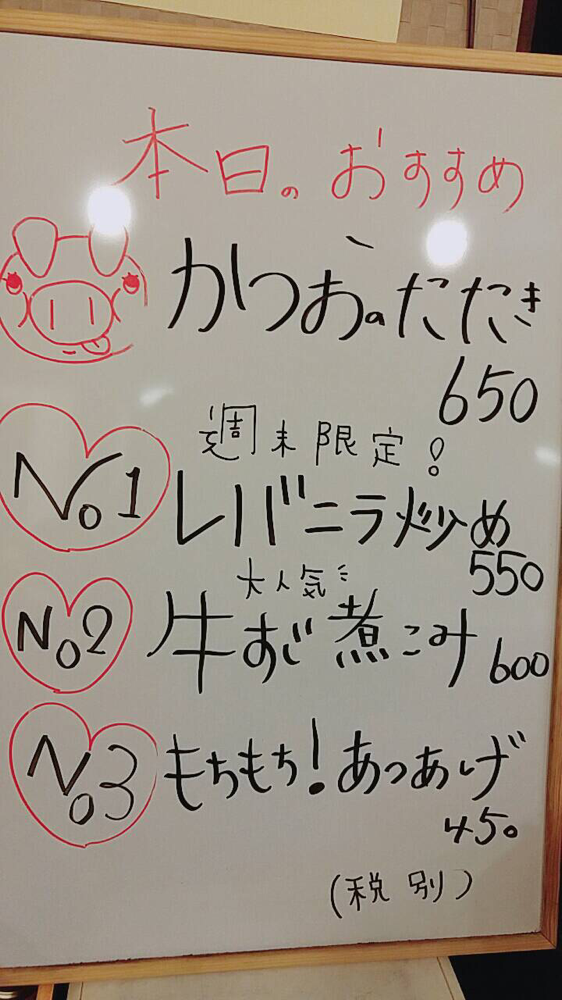 本日のおすすめ
かつおのたたき
650
週末限定!
No1 レバニラ炒め
550
大人気
No2 牛すじ煮こみ 600
No3 もちもち!あつあげ
450
(税別)